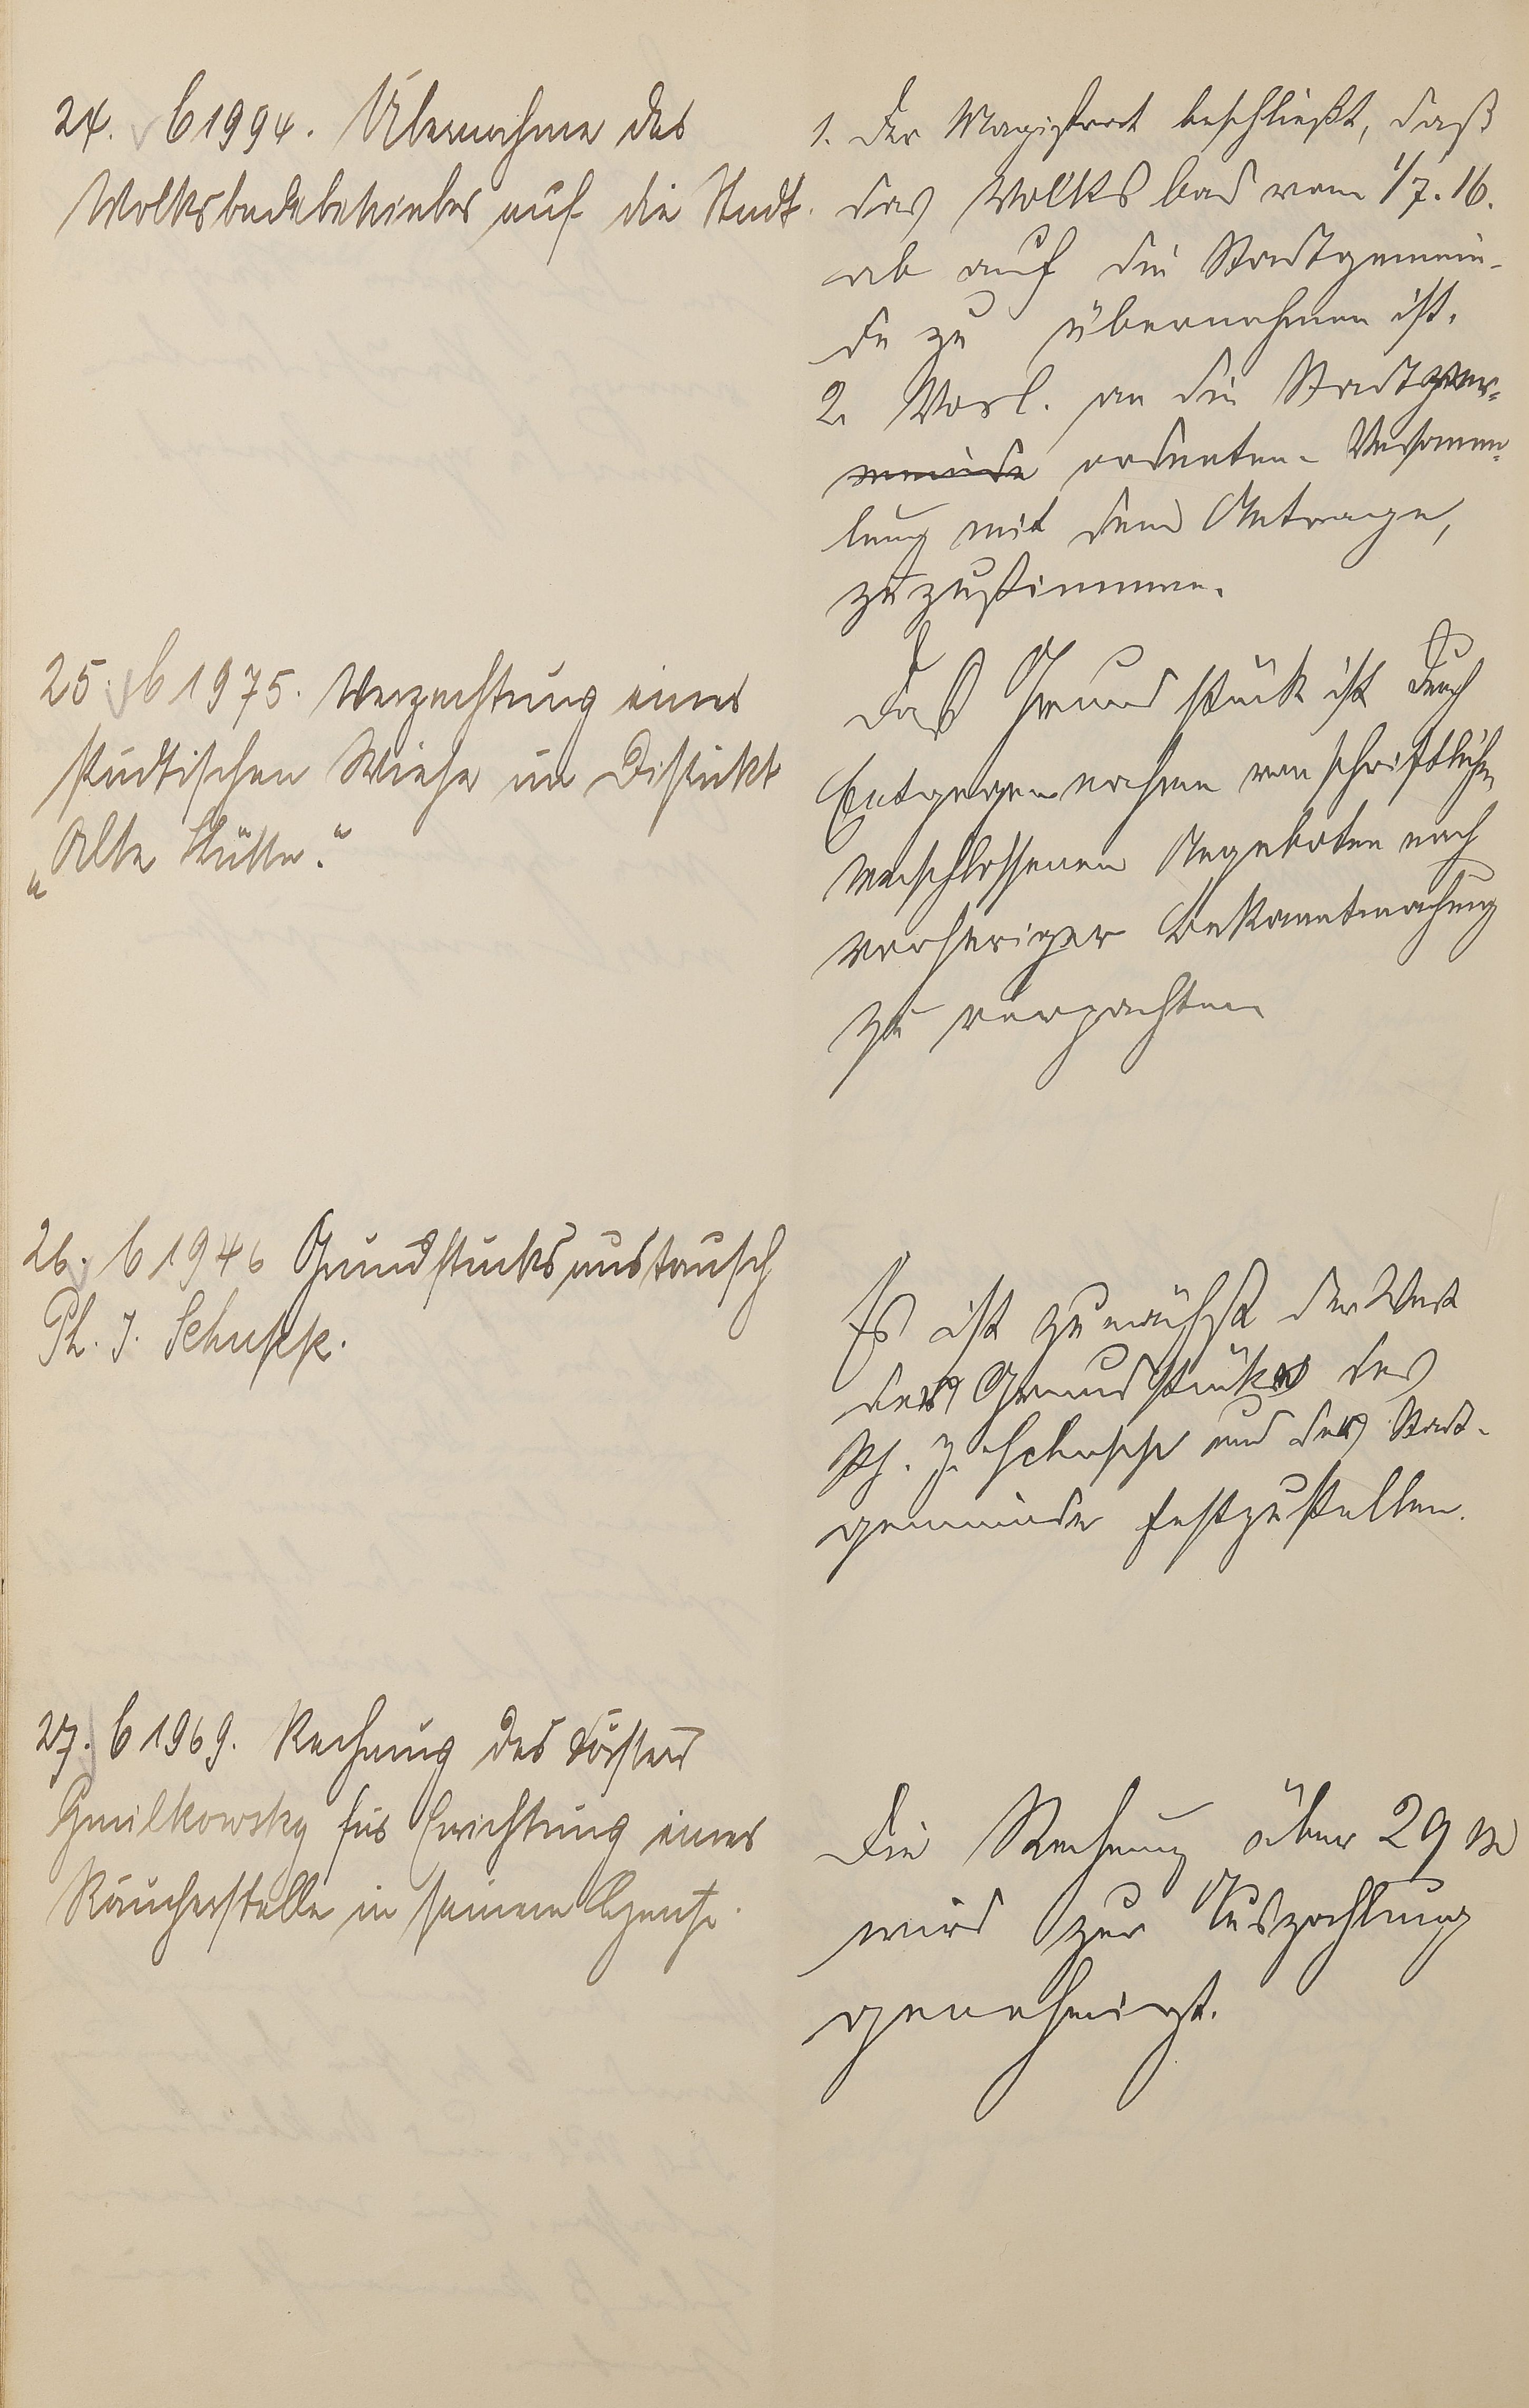 24. b 1994. Übernahme des
Volksbadebetriebes auf die Stadt.
1. Der Magistrat beschließt, daß
das Volksbad vom 1/7. 16.
ab auf die Stadtgemein-
de zu übernehmen ist.
2. Vorl. an die Stadtver-
ordneten-Versamm-
lung mit dem Antrage,
zuzustimmen.
25. b 1975. Verpachtung einer
städtischen Wiese im Distrikt
„Alte Hütte."
Das Grundstück ist durch
Entgegennahme von schriftlichen
verschlossenen Angeboten nach
vorheriger Bekanntmachung
zu verpachten
26. b 1946 Grundstücksaustausch
Ph. J. Schupp.
Es ist zunächst der Wert
des Grundstückes des
Ph. J. Schupp und der Stadt-
gemeinde festzustellen.
27. b 1969. Rechnung des Försters
Gmilkowsky für Errichtung einer
Räucherstelle in seinem
Die Rechnung über 29 M
wird zur Auszahlung
genehmigt.